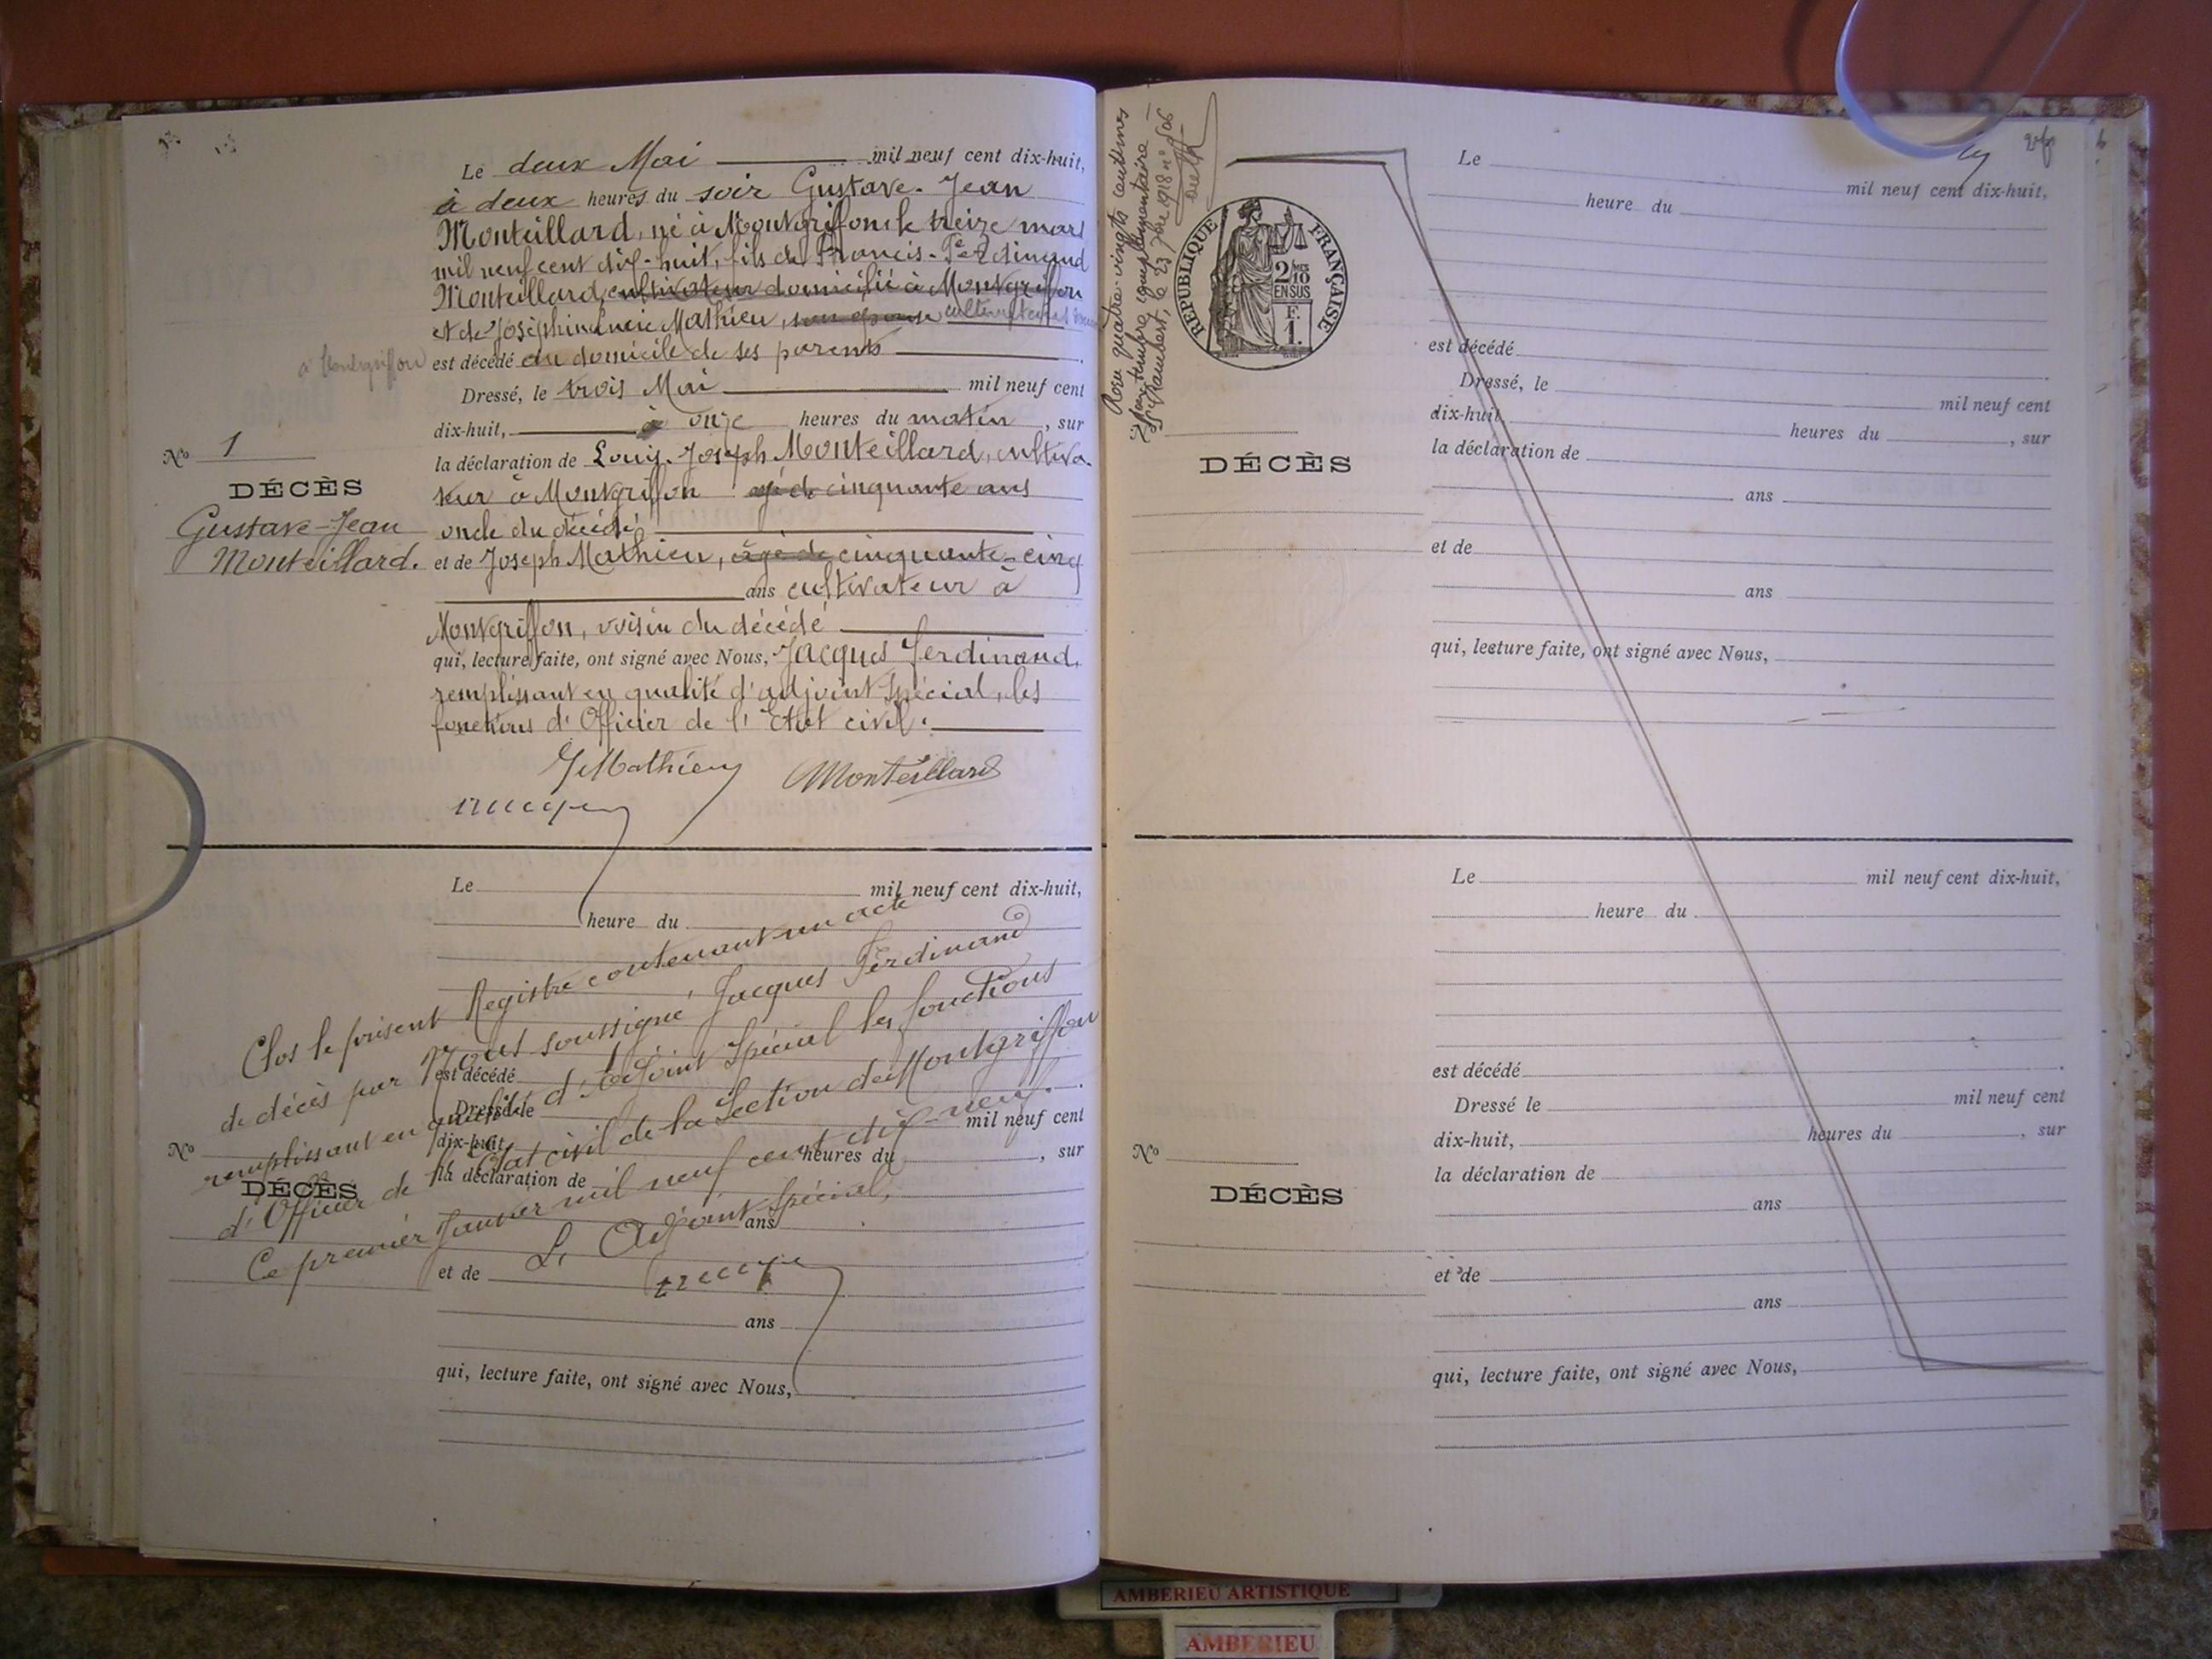 Le deux Mai mil neuf cent dix-huit,
à deux heures du soir Gustave-Jean
Monteillard, né à Montgriffon le treize mars
mil neuf cent dix-huit, fils de Francis-Ferdinand
Monteillard, cultivateur domicilié à Montgriffon
et de Joséphine Mathieu, son épouse cultivateurs
à Montgriffon est décédé au domicile de ses parents
Dressé, le trois Mai mil neuf cent
dix-huit, à onze heures du matin, sur
la déclaration de Louis-Joseph Monteillard, cultiva-
teur à Montgriffon âgé de cinquante ans
oncle du décédé
et de Joseph Mathieu, âgé de cinquante-cinq
ans cultivateur à
Montgriffon, voisin du décédé
qui, lecture faite, ont signé avec Nous, Jacques Ferdinand,
remplissant en qualité d'adjoint Spécial, les
fonctions d'Officier de l'Etat civil.
No 1
DÉCÈS
Gustave-Jean
Monteillard.
J Mathieu Monteillard
Le mil neuf cent dix-huit,
heure du
est décédé
Dressé le mil neuf cent
dix-huit, heures du , sur
No
DÉCÈS
la déclaration de
ans
et de
ans
qui, lecture faite, ont signé avec Nous,
Clos le présent Registre contenant un acte
de décès par Nous soussigné Jacques Ferdinand
remplissant en qualité d'Adjoint Spécial les fonctions
d'Officier de l'Etat civil de la Section de Montgriffon
Ce premier Janvier mil neuf cent dix-neuf.
L'Adjoint Spécial,
Reçu quatre-vingts centimes
pour timbre complémentaire
St Rambert, le 23 7bre 1918 n° 506
RÉPUBLIQUE FRANÇAISE
2/10 MES
EN SUS
F.
1.
Le mil neuf cent dix-huit,
heure du
est décédé
Dressé, le mil neuf cent
dix-huit, heures du , sur
DÉCÈS
la déclaration de
ans
et de
ans
qui, lecture faite, ont signé avec Nous,
Le mil neuf cent dix-huit,
heure du
est décédé
Dressé le mil neuf cent
dix-huit, heures du , sur
No
DÉCÈS
la déclaration de
ans
et de
ans
qui, lecture faite, ont signé avec Nous,
AMBERIEU ARTISTIQUE
AMBERIEU